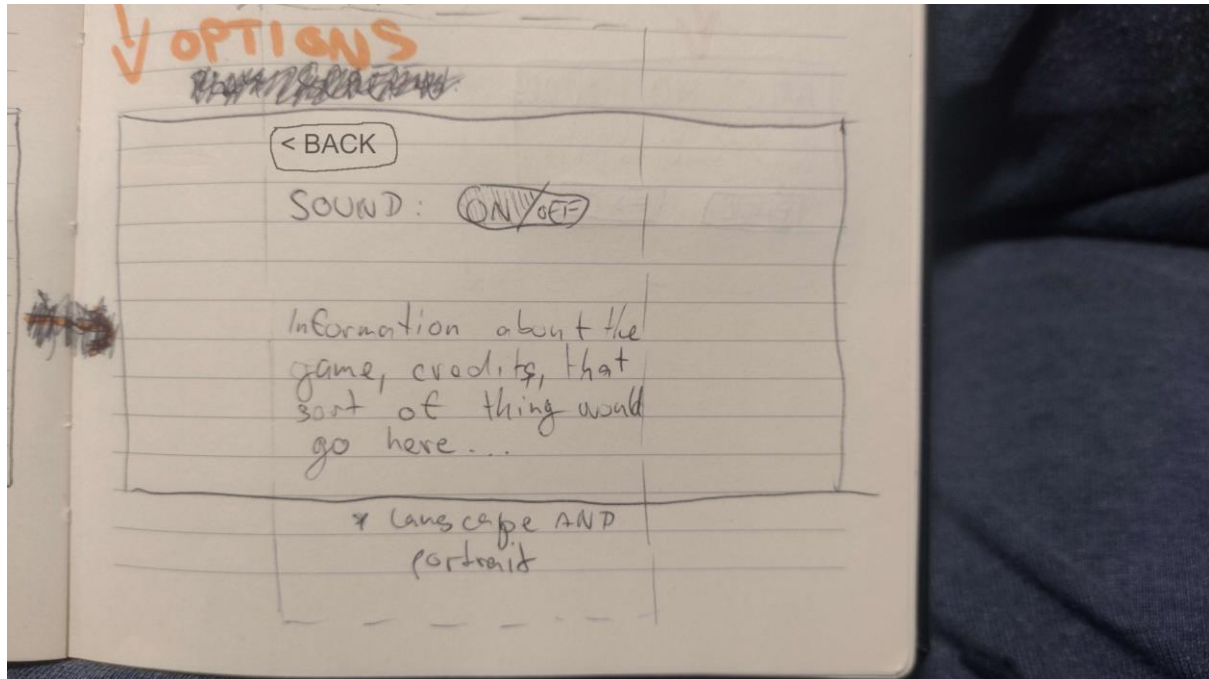 OPTIONS
< BACK
SOUND: ON/OFF
Information about the
game, credits, that
sort of thing would
go here...
* Lanscape AND
portrait